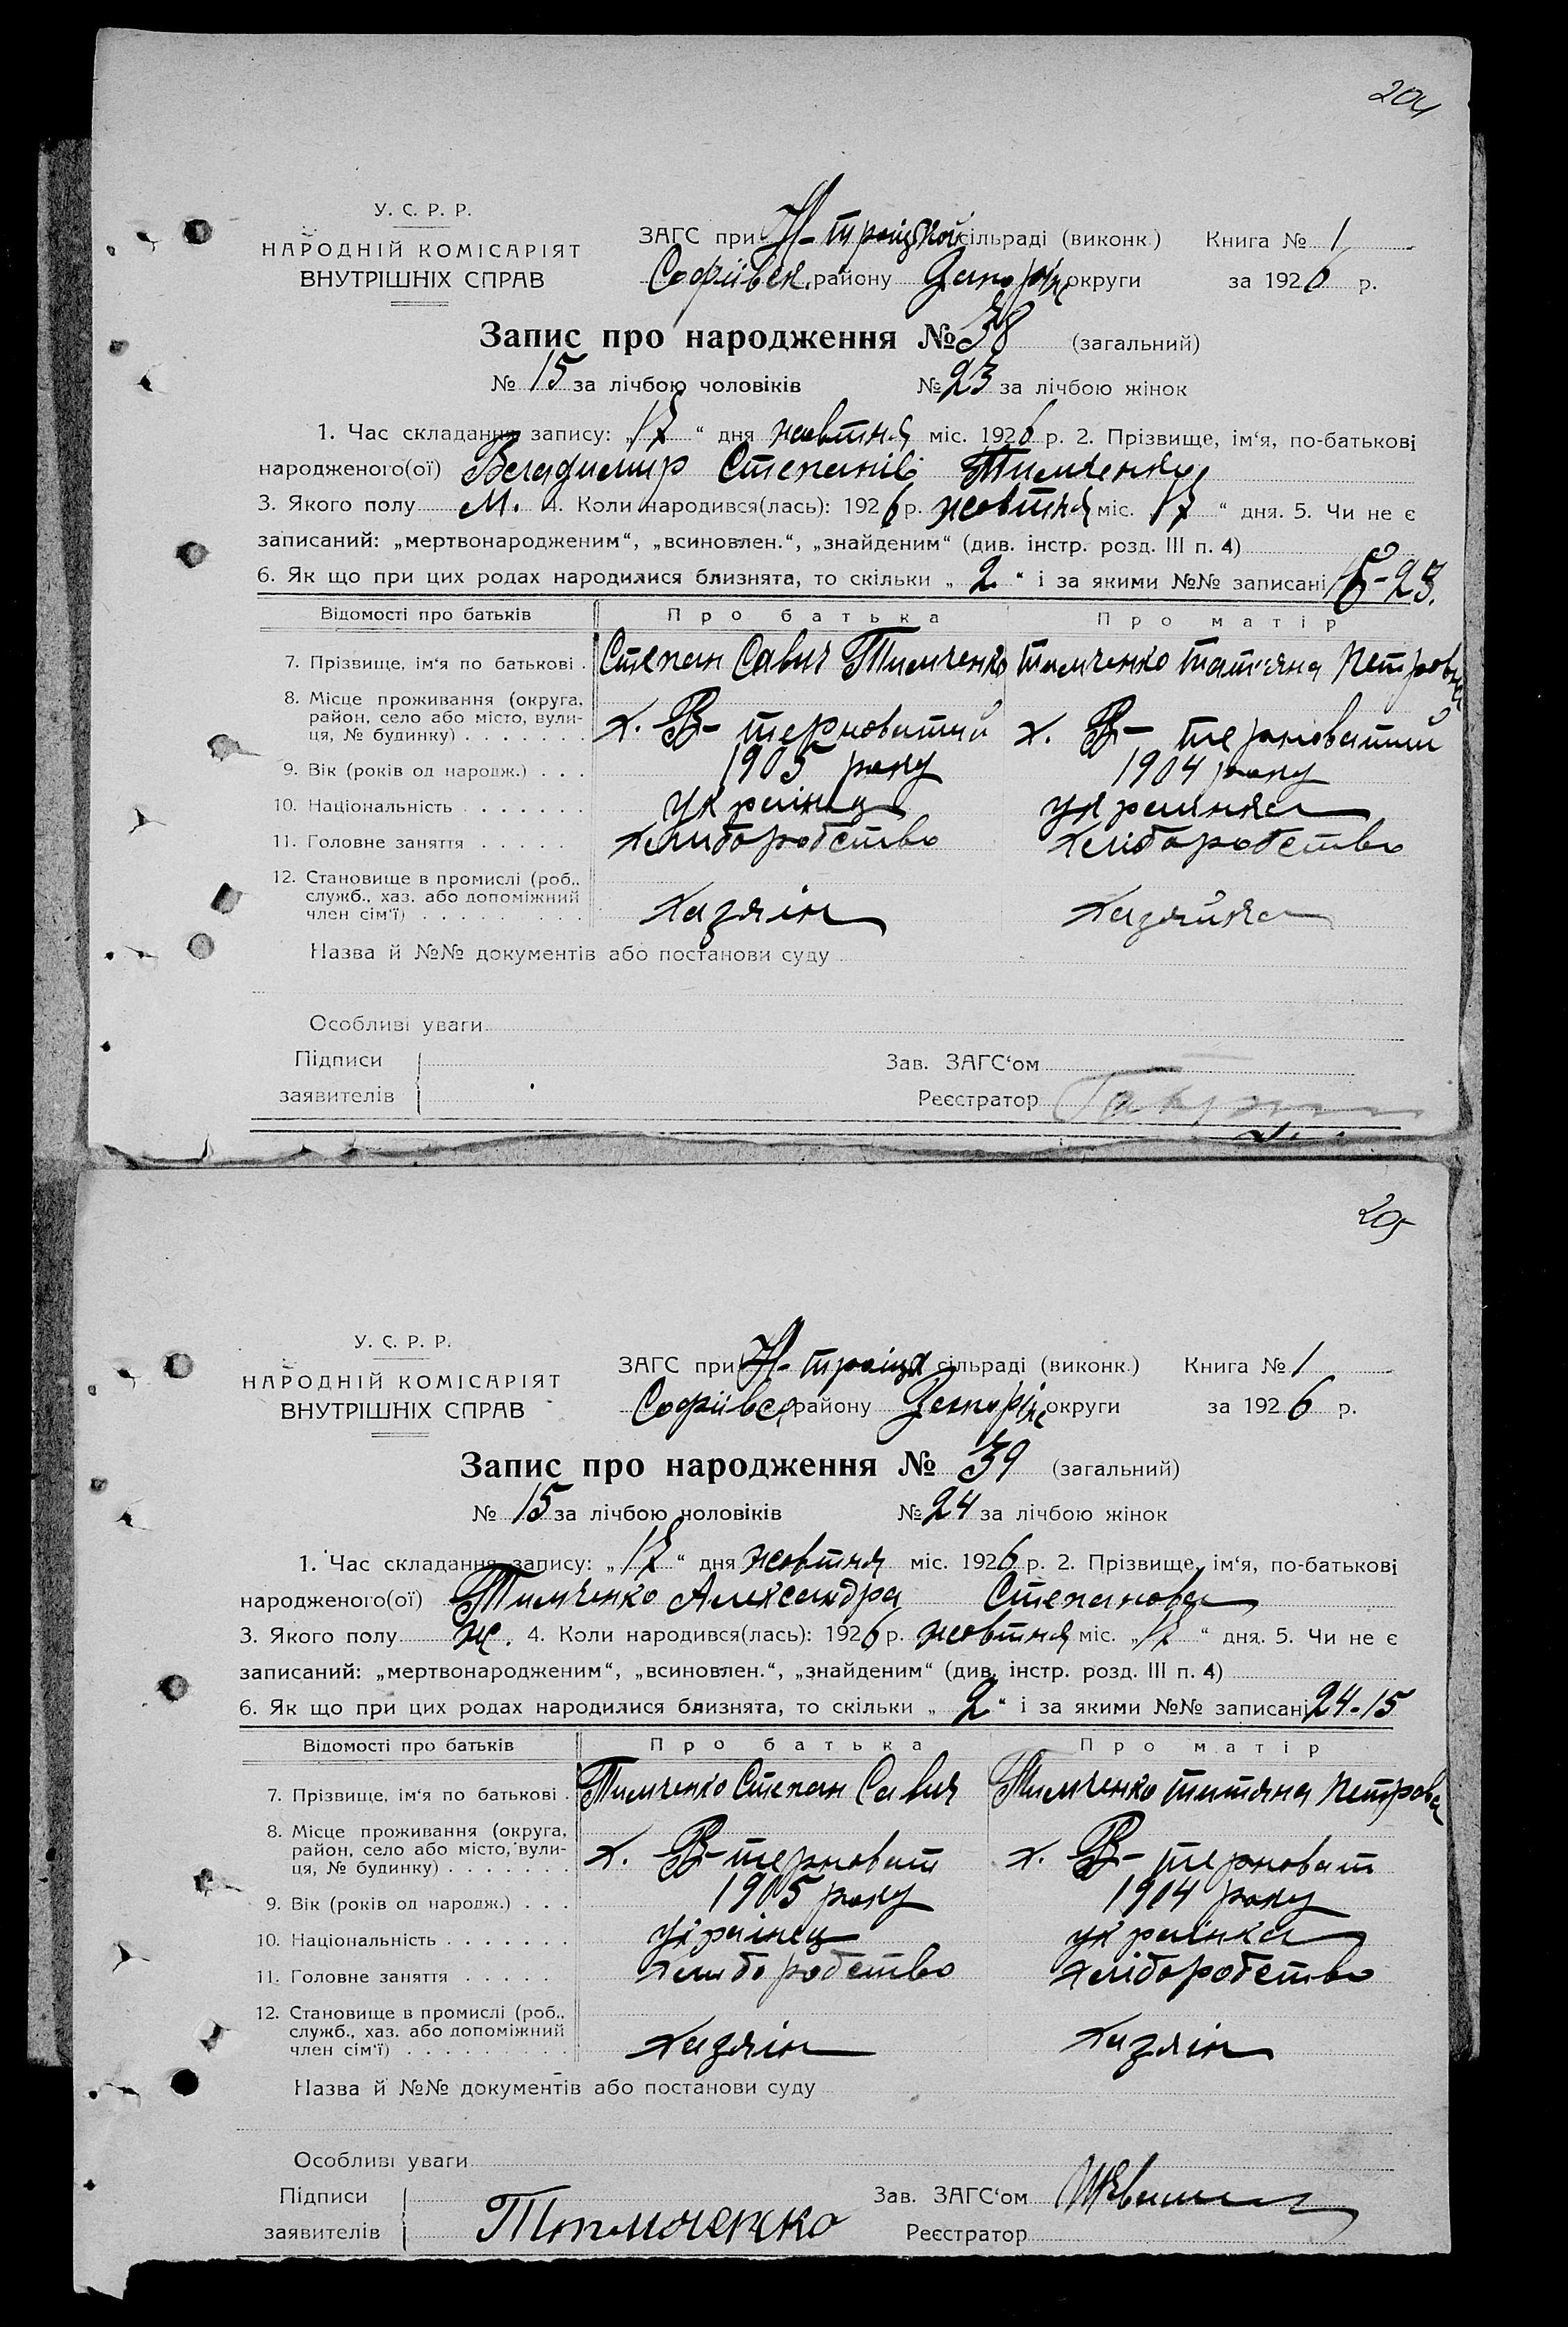 204
У. С. Р. Р.
НАРОДНІЙ КОМІСАРІЯТ
ВНУТРІШНІХ СПРАВ
ЗАГС при Н-троіцкой сільраді (виконк.) Книга № 1
Софіівск. району Запоріж округи за 1926 р.
Запис про народження № 38 (загальний)
№ 15 за лічбою чоловіків № 23 за лічбою жінок
1. Час складання запису: „17“ дня жовтня міс. 1926 р. 2. Прізвище, ім‘я, по-батькові
народженого(ої) Владимир Степанів Тимченко
3. Якого полу М. 4. Коли народився(лась): 1926 р. жовтня міс. 17“ дня. 5. Чи не є
записаний: „мертвонародженим“, „всиновлен.“, „знайденим“ (див. інстр. розд. III п. 4)
6. Як що при цих родах народилися близнята, то скільки „2“ і за якими №№ записані 15-23.
Відомості про батьків Про батька Про матір
7. Прізвище, ім‘я по батькові. Степан Савич Тимченко Тимченко Татяна Петровна
8. Місце проживання (округа,
район, село або місто, вули-
ця, № будинку) . . . . . . . х. В- терноватий х. В- терноватий
9. Вік (років од народж.) . . . 1905 року 1904 року
10. Національність . . . . . . . украінец украинка
11. Головне заняття . . . . . хлиборобство хліборобство
12. Становище в промислі (роб.,
служб., хаз. або допоміжний
член сім‘ї) . . . . . . . . хазяін хазяйка
Назва й №№ документів або постанови суду
Особливі уваги
Підписи Зав. ЗАГС‘ом
заявителів Реєстратор
205
У. С. Р. Р.
НАРОДНІЙ КОМІСАРІЯТ
ВНУТРІШНІХ СПРАВ
ЗАГС при Н-троіцк сільраді (виконк.) Книга № 1
Софіівск району Запоріж округи за 1926 р.
Запис про народження № 39 (загальний)
№ 15 за лічбою чоловіків № 24 за лічбою жінок
1. Час складання запису: „17“ дня жовтня міс. 1926 р. 2. Прізвище, ім‘я, по-батькові
народженого(ої) Тимченко Александра Степанова
3. Якого полу ж. 4. Коли народився(лась): 1926 р. жовтня міс. „17“ дня. 5. Чи не є
записаний: „мертвонародженим“, „всиновлен.“, „знайденим“ (див. інстр. розд. III п. 4)
6. Як що при цих родах народилися близнята, то скільки „2“ і за якими №№ записані 24-15
Відомості про батьків Про батька Про матір
7. Прізвище, ім‘я по батькові. Тимченко Степан Савич Тимченко Татяна Петрова
8. Місце проживання (округа,
район, село або місто, вули-
ця, № будинку) . . . . . . . х. В-терноват х. В- терноват
9. Вік (років од народж.) . . . 1905 року 1904 року
10. Національність . . . . . . . украінец украінка
11. Головне заняття . . . . . хлиборобство хліборобство
12. Становище в промислі (роб.,
служб., хаз. або допоміжний
член сім‘ї) . . . . . . . . хазяін хазяін
Назва й №№ документів або постанови суду
Особливі уваги
Підписи Зав. ЗАГС‘ом
заявителів Тимченко Реєстратор